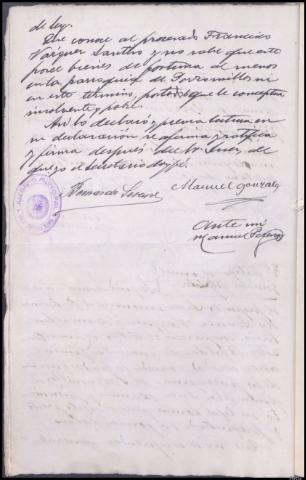 de ley.
Que conoce al procesado Francisco
Vazquez Santos y no sabe que este
posee bienes de fortuna al menos
en la parroquia de Torromillos ni
en este término, por lo que le conceptua
insolvente y pobre.
Así lo declaró y previa lectura en
su declaración se afirma y ratifica
y firma después del Sr. Juez de
que yo el secretario doy fé.
Manuel Gonzalez
Ante mi
Manuel